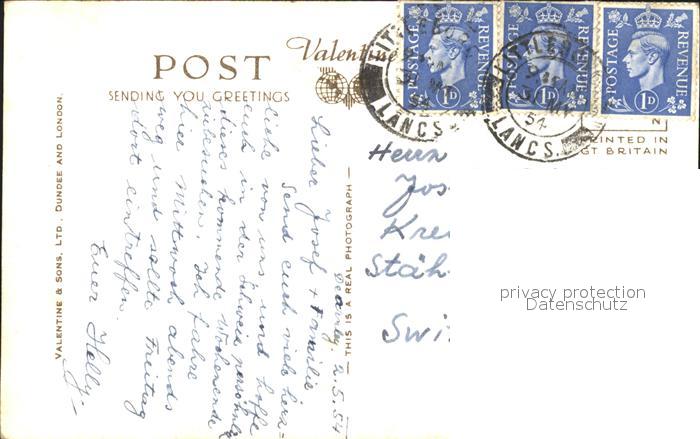 POST
Valentine
SENDING YOU GREETINGS
VALENTINE & SONS, LTD., DUNDEE AND LONDON.
THIS IS A REAL PHOTOGRAPH
2.5.54
Lieber Josef + Familie
Send euch viele herz-
liche von uns und hoffe
euch in der Schweiz persönlich
dieses kommende Wochenende
zu besuchen. Ich fahre
hier Mittwoch abends
weg und sollte Freitag
dort eintreffen.
Euer Helly
POSTAGE REVENUE
1D
POSTAGE REVENUE
1D
POSTAGE REVENUE
1D
LANCS.
54
LANCS.
54
PRINTED IN
GT BRITAIN
Herrn
Jos
Kre
Stäh
Swi
privacy protection
Datenschutz